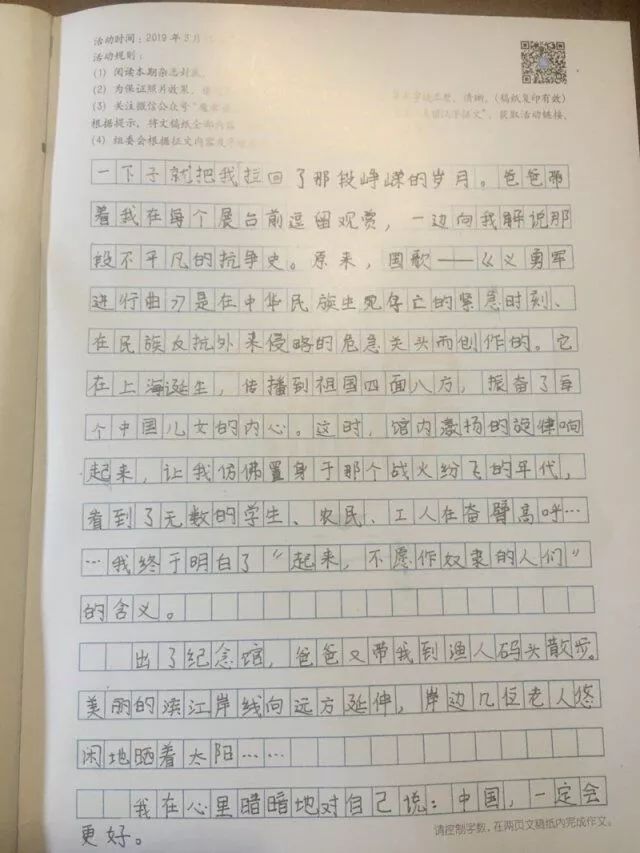 活动时间：2019年3月
活动规则：
(1) 阅读本期杂志封底，
(2) 为保证照片效果， 清晰。(稿纸复印有效)
(3) 关注微信公众号 获取活动链接，
根据提示，将文稿纸全部内容
(4) 组委会根据征文内容及
一下子就把我拉回了那段峥嵘的岁月。爸爸带
着我在每个展台前逗留观赏，一边向我解说那
段不平凡的抗争史。原来，国歌——《义勇军
进行曲》是在中华民族生死存亡的紧急时刻、
在民族反抗外来侵略的危急关头而创作的。它
在上海诞生，传播到祖国四面八方，振奋了每
个中国儿女的内心。这时，馆内激扬的旋律响
起来，让我仿佛置身于那个战火纷飞的年代，
看到了无数的学生、农民、工人在奋臂高呼…
…我终于明白了“起来，不愿作奴隶的人们”
的含义。
出了纪念馆，爸爸又带我到渔人码头散步。
美丽的滨江岸线向远方延伸，岸边几位老人悠
闲地晒着太阳……
我在心里暗暗地对自己说：中国，一定会
更好。
请控制字数，在两页文稿纸内完成作文。